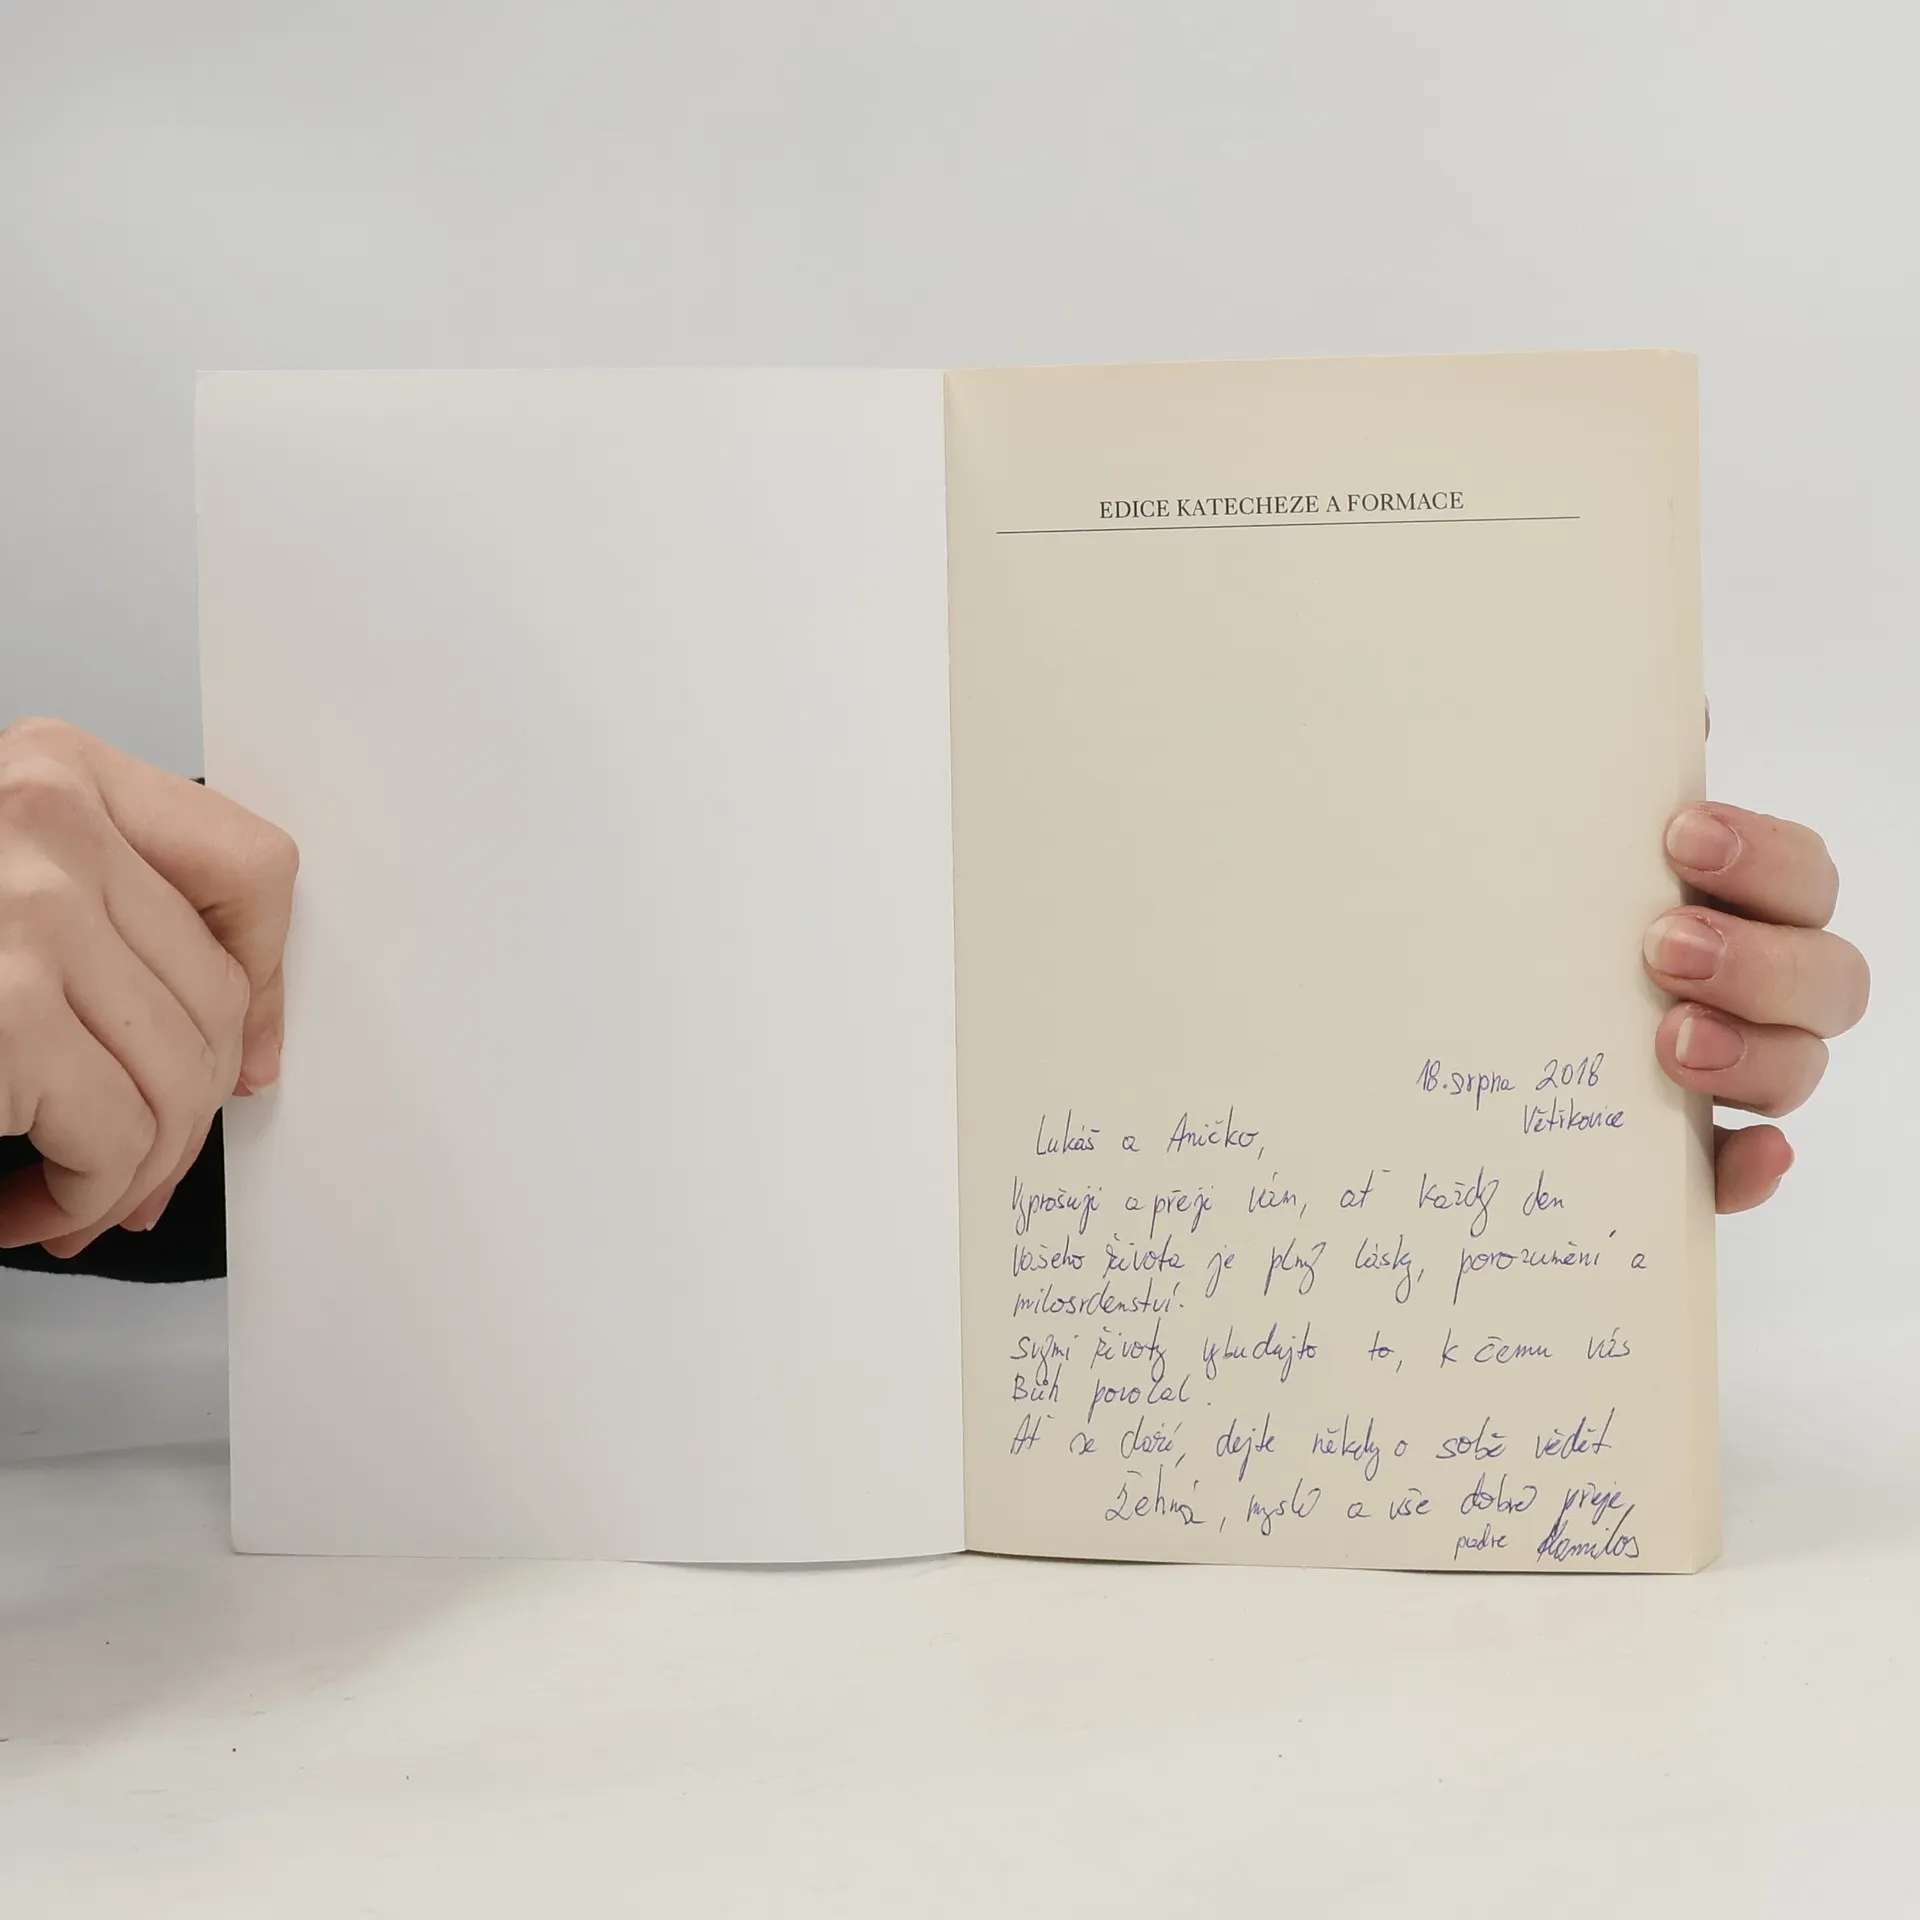 EDICE KATECHEZE A FORMACE
18. srpna 2018
Větřkovice
Lukáš a Aničko,
Vyprošuji a přeji vám, ať každý den
Vašeho života je plný lásky, porozumění a
milosrdenství.
svými životy vybudujte to, k čemu vás
Bůh povolal.
Ať se daří, dejte někdy o sobě vědět
Žehná, myslí a vše dobré přeje,
padre Kamilos